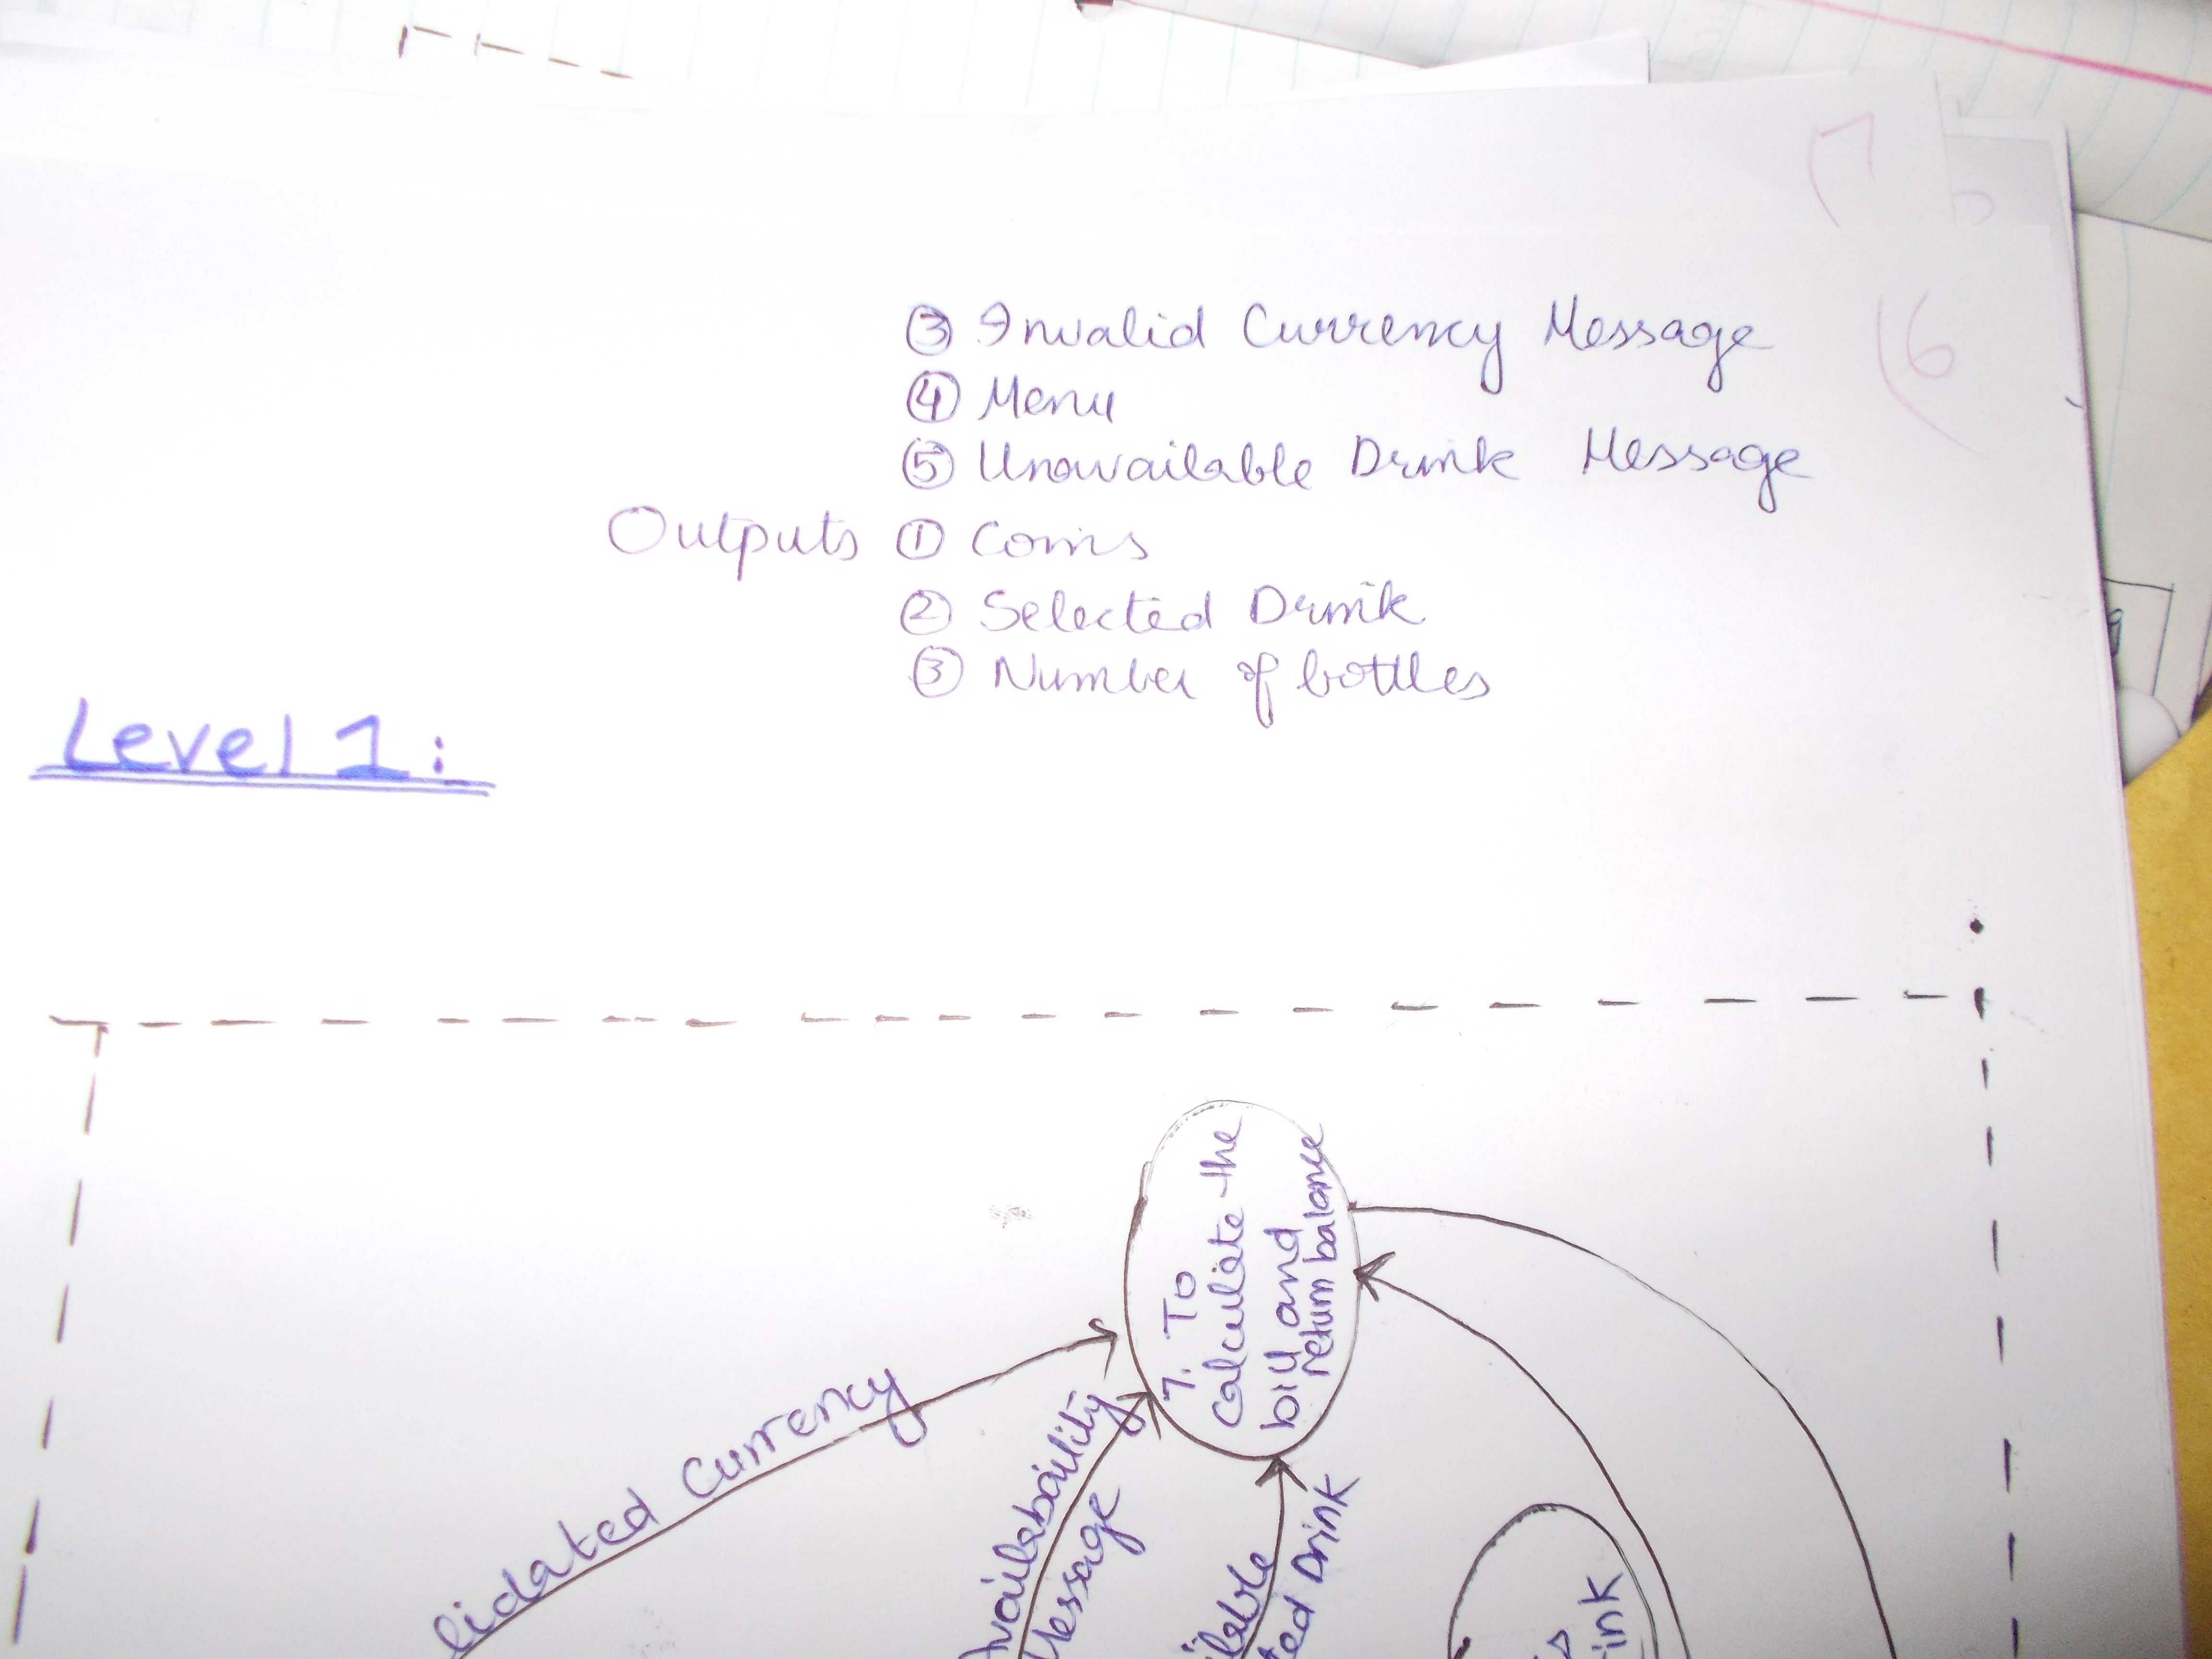 17
16
③ Invalid Currency Message
④ Menu
⑤ Unavailable Drink Message
Outputs ① Coins
② Selected Drink
③ Number of bottles
Level 1:
7. To
Calculate the
bill and
return balance
lidated Currency
Availability
Message
ilable
ted Drink
ink